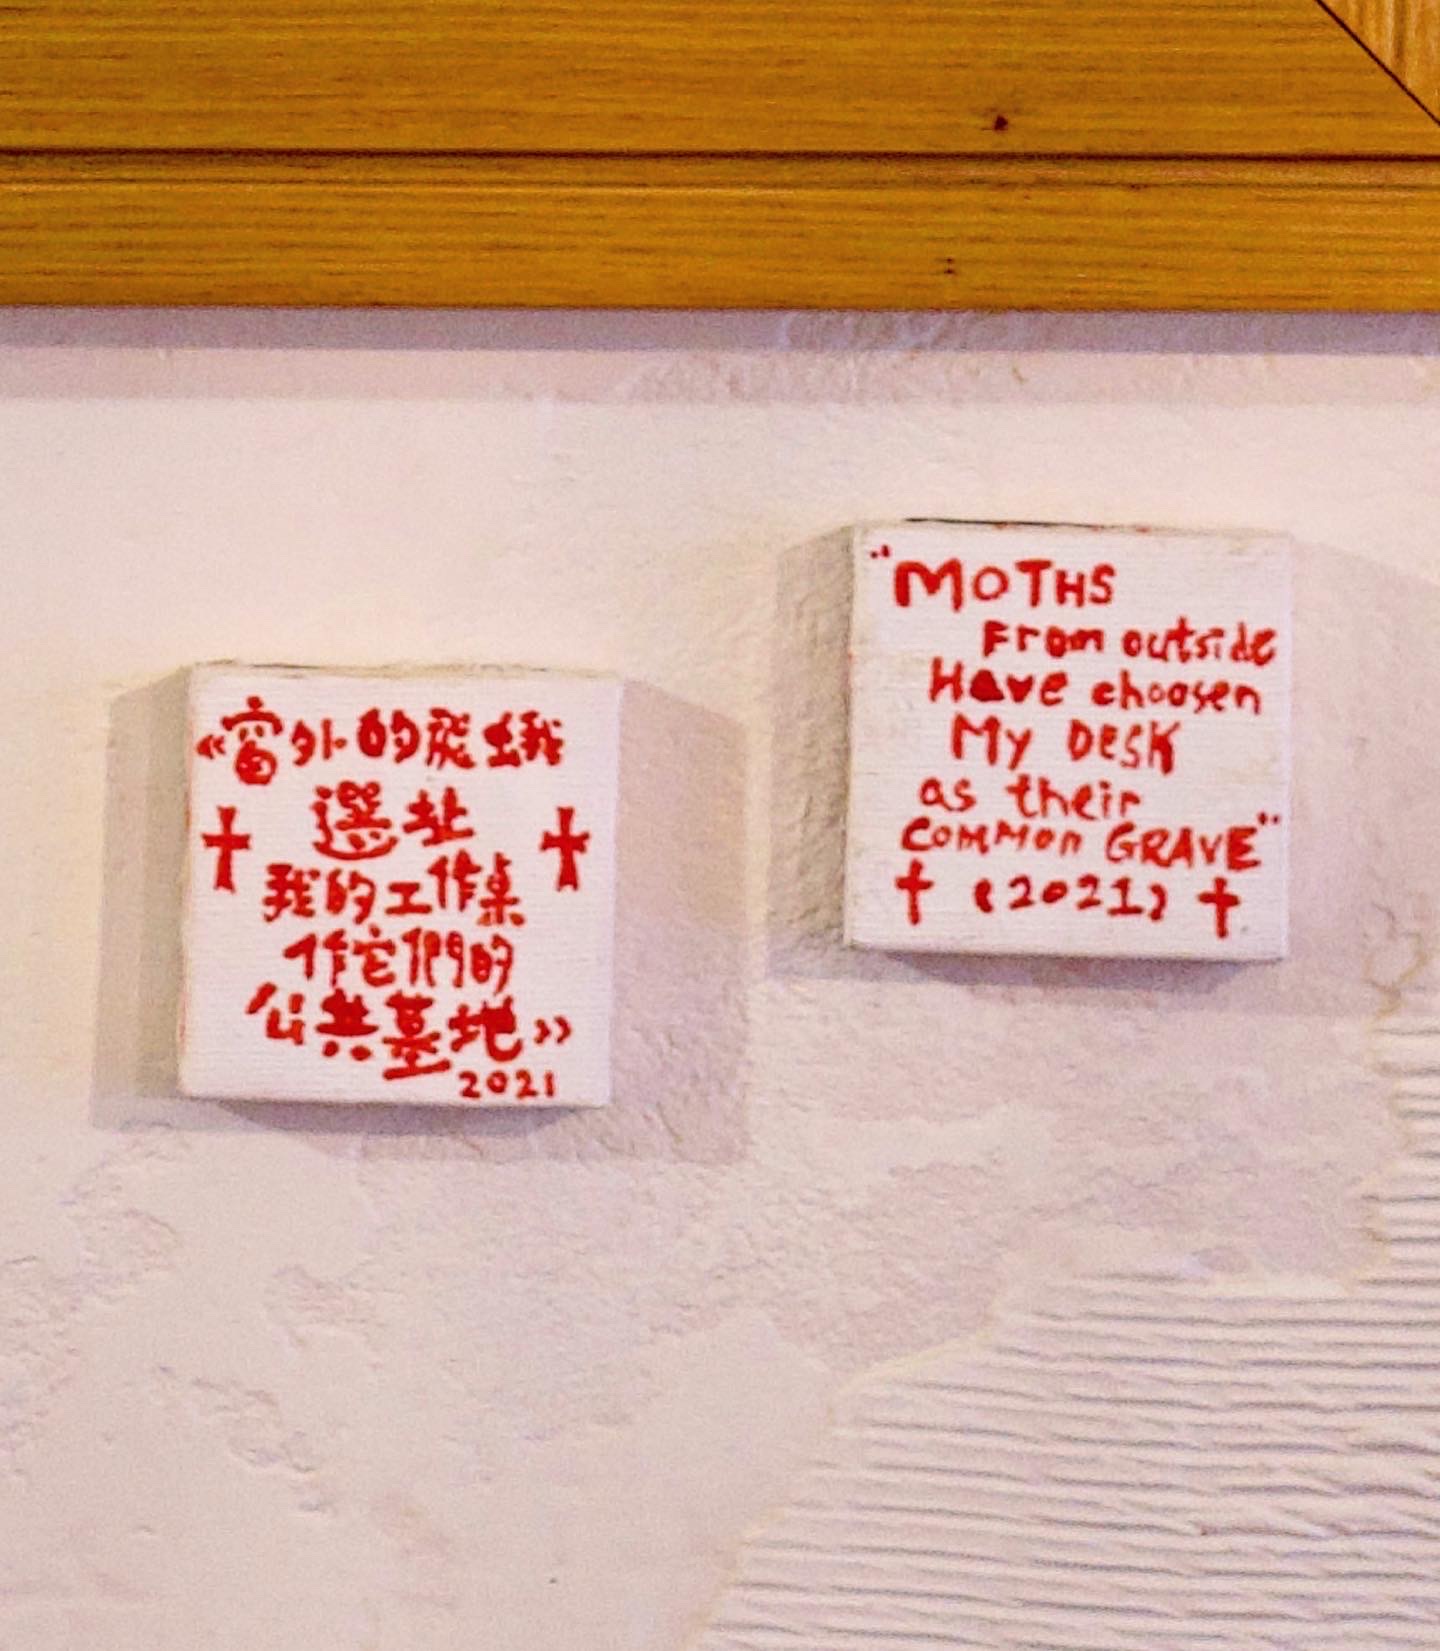 《窗外的飛蛾
選址
我的工作桌
作它們的
公共墓地》
2021
"MOTHS
From outside
Have choosen
My DESK
as their
common GRAVE"
(2021)